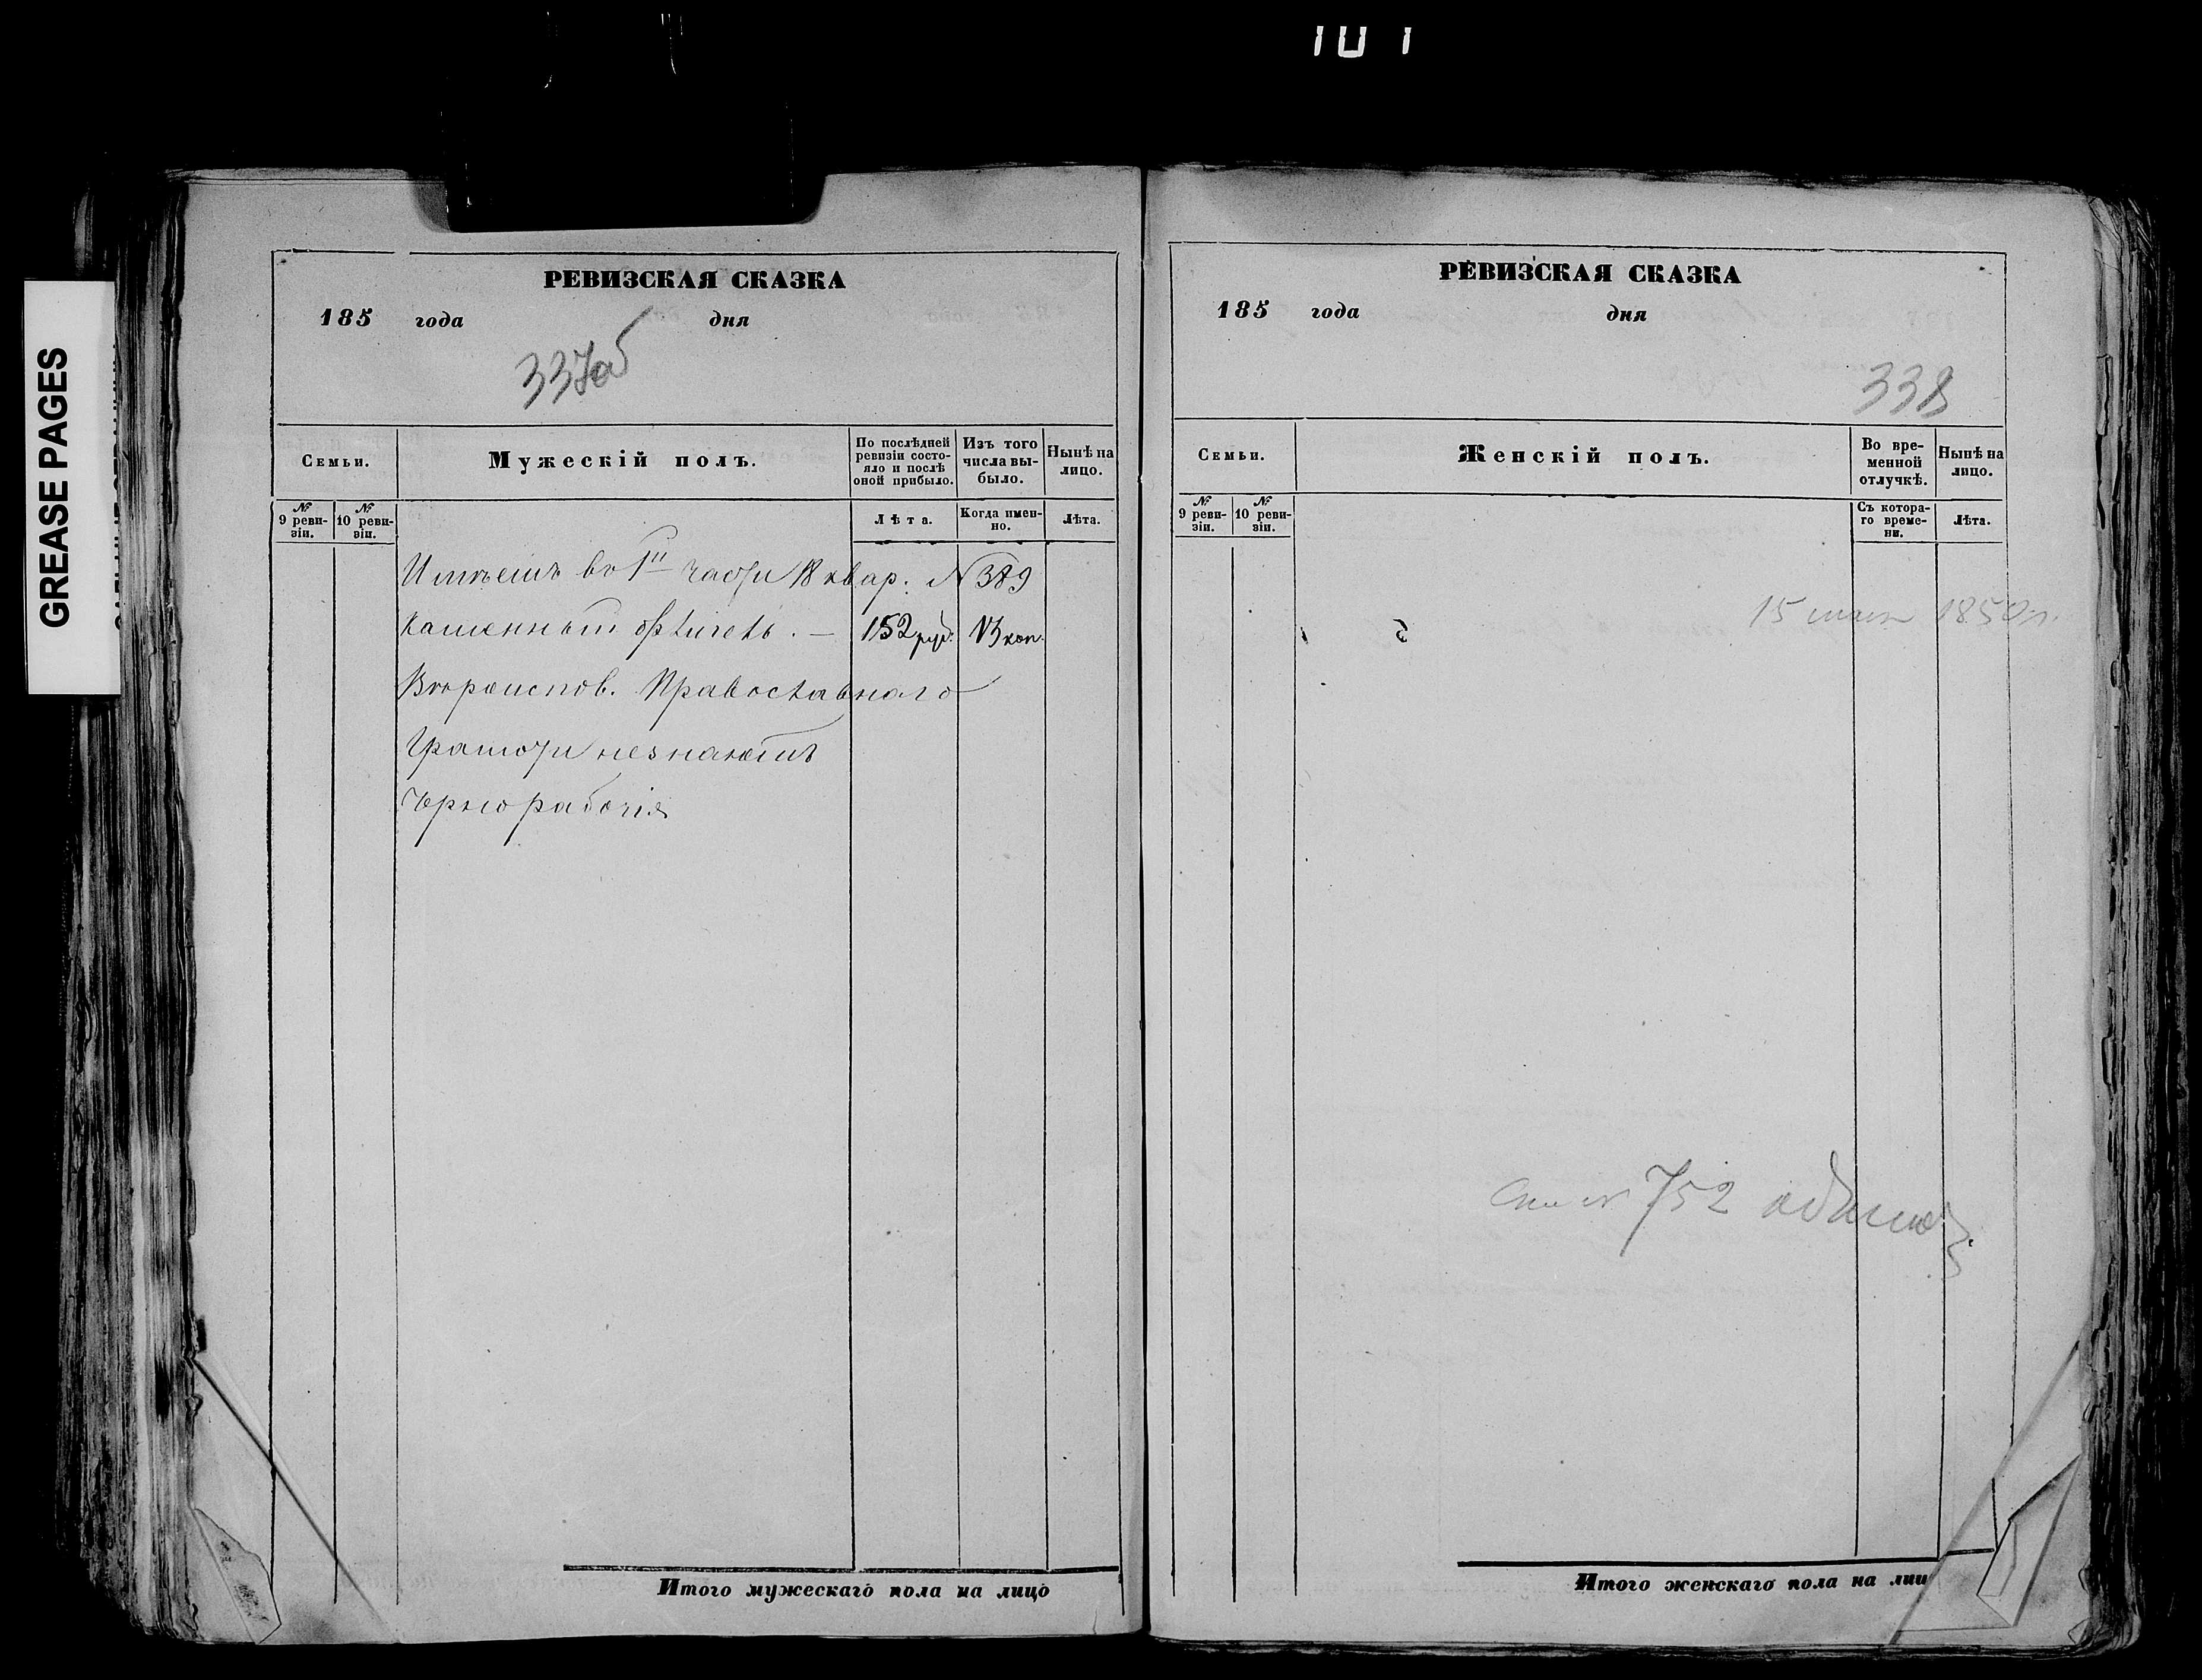 101
GREASE PAGES
РЕВИЗСКАЯ СКАЗКА
185 года дня
337об
Семьи.
Мужескій полъ.
По послѣдней ревизіи состояло и послѣ оной прибыло.
Изъ того числа выбыло.
Нынѣ на лицо.
№ 9 ревизіи.
№ 10 ревизіи.
Лѣта.
Когда именно.
Лѣта.
Имѣетъ во 1й части 18 квар. № 389
каменный – 152 руб. 13 коп.
Вѣроиспов. Православнаго
Грамоти незнаютъ
Чернорабочія
Итого мужескаго пола на лицо
РЕВИЗСКАЯ СКАЗКА
185 года дня
338
Семьи.
Женскій полъ.
Во временной отлучкѣ.
Нынѣ на лицо.
№ 9 ревизіи.
№ 10 ревизіи.
Съ котораго времени.
Лѣта.
15 1850 г.
№ 752
Итого женскаго пола на лиц